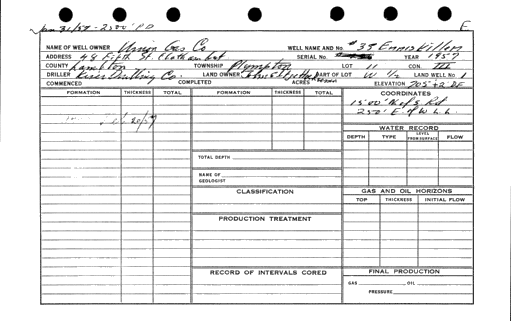 Jan 31/57 - 2300' P D
E
NAME OF WELL OWNER Union Gas Co WELL NAME AND No. #35 Enniskillen
ADDRESS 48 Fifth St Chatham Ont SERIAL No. YEAR 1957
COUNTY Lambton TOWNSHIP Plympton LOT 11 CON. III
DRILLER Drilling Co. LAND OWNER PART OF LOT W 1/2 LAND WELL No 1
COMMENCED COMPLETED ACRES ELEVATION 705+2 DF
FORMATION THICKNESS TOTAL FORMATION THICKNESS TOTAL COORDINATES
1500' N of S Rd
250' E. of W L.L.
Feb 20/57
WATER RECORD
DEPTH TYPE LEVEL FROM SURFACE FLOW
TOTAL DEPTH
NAME OF GEOLOGIST
CLASSIFICATION GAS AND OIL HORIZONS
TOP THICKNESS INITIAL FLOW
PRODUCTION TREATMENT
RECORD OF INTERVALS CORED FINAL PRODUCTION
GAS OIL
PRESSURE